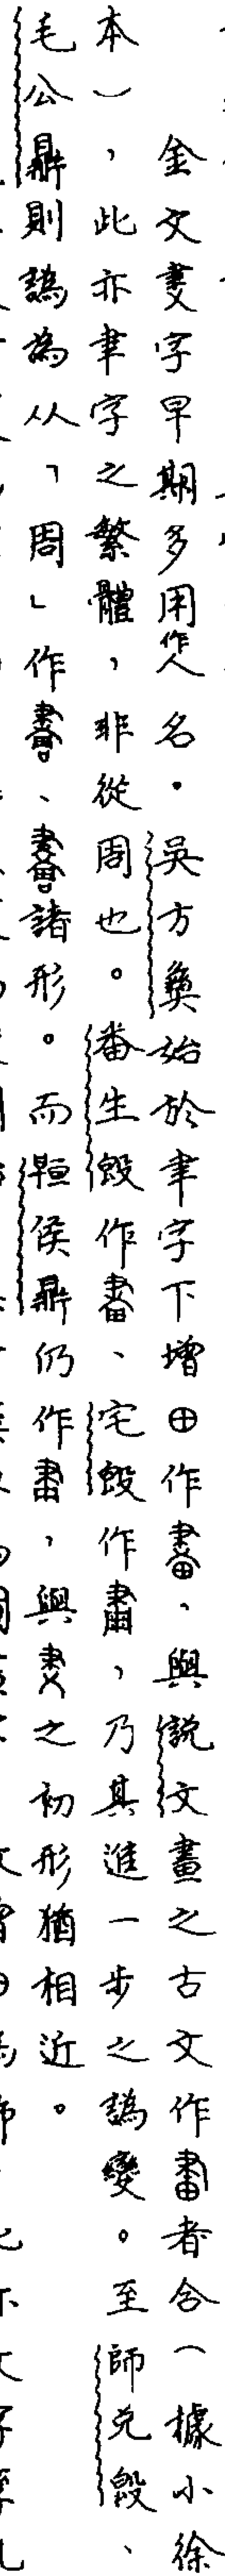 金文畫字早期多用作人名。吳方彝始於聿字下增田作畫，與說文畫之古文作畫者合（據小徐
本），此亦聿字之繁體，非從周也。番生毁作畫、宅毁作畫，乃其進一步之譌變。至師兌毁、
毛公鼎則譌為从「周」作、諸形。而侯鼎仍作畫，與之初形猶相近。